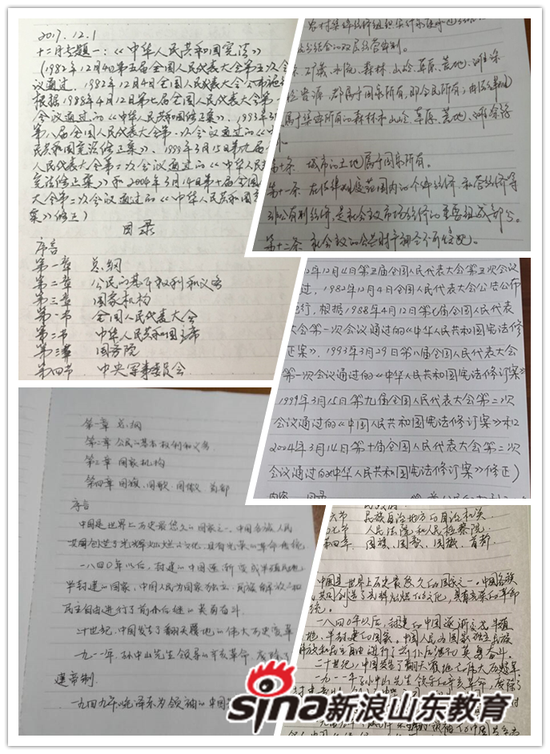 2017.12.1
十二月专题一:《中华人民共和国宪法》
(1982年12月4日第五届全国人民代表大会第五次会
议通过,1982年12月4日全国人民代表大会公告
根据1988年4月12日第七届全国人民代表大会第一
会议通过的《中华人民共和国修正案》、1993年
第八届全国人民代表大会第一次会议通过的《中
民共和国宪法修正案》、1999年3月15日第九届
人民代表大会第二次会议通过的《中华人民共
宪法修正案》和2004年3月14日第十届全国人民
大会第二次会议通过的《中华人民共和国
案》修正)
目录
序言
第一章 总纲
第二章 公民的基本权利和义务
第三章 国家机构
第一节 全国人民代表大会
第二节 中华人民共和国主席
第三章 国务院
第四节 中央军事委员会
矿藏、水流、森林、山岭、草原、荒地、滩涂
第十条 城市的土地属于国家所有。
第十一条 在法律规定范围内的个体经济、私营经济等
非公有制经济,是社会主义市场经济的重要组成部分。
第十二条 社会主义的公共财产神圣不可侵犯。
2年12月4日第五届全国人民代表大会第五次会议
过,1982年12月4日全国人民代表大会公告公布
行,根据1988年4月12日第七届全国人民代表
大会第一次会议通过的《中华人民共和国宪法修
正案》,1993年3月29日第八届全国人民代表大会
第一次会议通过的《中华人民共和国宪法修订案》
1999年3月15日第九届全国人民代表大会第二次
会议通过的《中国人民共和国宪法修订案》和
2004年3月14日第十届全国人民代表大会第二次
会议通过的《中华人民共和国宪法修订案》修正)
第一章 总纲
第二章 公民的基本权利和义务
第三章 国家机构
第四章 国旗、国歌、国徽、首都
序言
中国是世界上历史最悠久的国家之一。中国各族人民
共同创造了光辉灿烂的文化,具有光荣的革命传统
一八四〇年以后,封建的中国逐渐变成半殖民地、
半封建的国家。中国人民为国家独立、民族解放和
民主自由进行了前仆后继的英勇奋斗。
二十世纪,中国发生了翻天覆地的伟大历史变革
一九一一年孙中山先生领导的辛亥革命,废除了
建帝制
一九四九年,毛泽东为领袖的中国
六节 民族自治地方的自治机关
七节 人民法院和人民检察院
第四章 国旗、国歌、国徽、首都
中国是世界上历史最悠久的国家之一。中国各族
共同创造了光辉灿烂的文化,具有光荣的革命
统。
一八四〇年以后,封建的中国逐渐变成半殖
地、半封建的国家。中国人民为国家独立、民族
解放和民主自由进行了前仆后继的英勇奋斗。
二十世纪,中国发生了翻天覆地的伟大历史变革。
一九一一年孙中山先生领导的辛亥革命,废除了
sina新浪山东教育